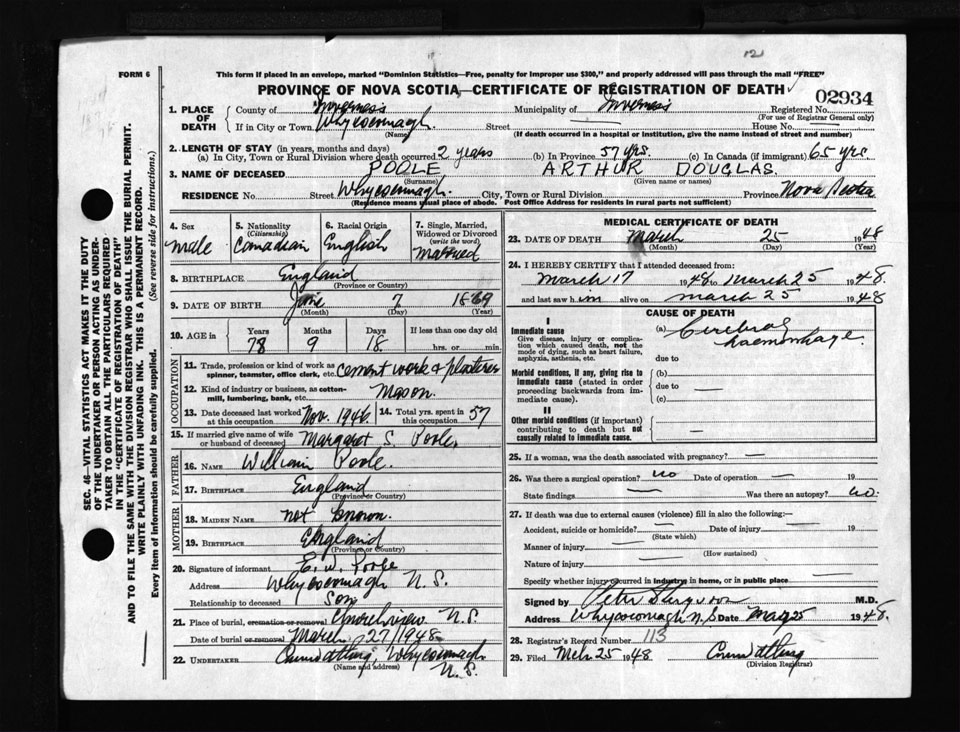 12
FORM 6
This form if placed in an envelope, marked "Dominion Statistics—Free, penalty for improper use $300," and properly addressed will pass through the mail "FREE"
PROVINCE OF NOVA SCOTIA—CERTIFICATE OF REGISTRATION OF DEATH
02934
1. PLACE OF DEATH County of Inverness Municipality of Inverness Registered No.
(For use of Registrar General only)
If in City or Town Whycocomagh Street — House No. —
(Name) (If death occurred in a hospital or institution, give the name instead of street and number)
2. LENGTH OF STAY (in years, months and days)
(a) In City, Town or Rural Division where death occurred 2 years (b) In Province 57 yrs. (c) In Canada (if immigrant) 65 yrs.
3. NAME OF DECEASED POOLE ARTHUR DOUGLAS.
(Surname) (Given name or names)
RESIDENCE No. Street Whycocomagh. City, Town or Rural Division Province Nova Scotia
(Residence means usual place of abode. Post Office Address for residents in rural parts not sufficient)
4. Sex Male
5. Nationality (Citizenship) Canadian
6. Racial Origin English
7. Single, Married, Widowed or Divorced (write the word) Married
8. BIRTHPLACE England
(Province or Country)
9. DATE OF BIRTH June 7 1869
(Month) (Day) (Year)
10. AGE in Years Months Days If less than one day old
78 9 18 hrs. or min.
OCCUPATION
11. Trade, profession or kind of work as spinner, teamster, office clerk, etc. cement work & plasterer
12. Kind of industry or business, as cotton-mill, lumbering, bank, etc. Mason.
13. Date deceased last worked at this occupation Nov. 1946. 14. Total yrs. spent in this occupation 57
15. If married give name of wife or husband of deceased Margaret S. Poole
FATHER
16. NAME William Poole.
17. BIRTHPLACE England
(Province or Country)
MOTHER
18. MAIDEN NAME not known.
19. BIRTHPLACE England
(Province or Country)
20. Signature of informant E. W. Poole
Address Whycocomagh N. S.
Relationship to deceased Son
21. Place of burial, cremation or removal N.S.
Date of burial or removal March 27/1948
22. UNDERTAKER Whycocomagh
(Name and address) N. S.
MEDICAL CERTIFICATE OF DEATH
23. DATE OF DEATH March 25 1948
(Month) (Day) (Year)
24. I HEREBY CERTIFY that I attended deceased from:
March 17 1948 to March 25 1948.
and last saw him alive on March 25 1948
CAUSE OF DEATH
I
Immediate cause
Give disease, injury or complication which caused death, not the mode of dying, such as heart failure, asphyxia, asthenia, etc.
(a) Cerebral haemorrhage.
due to
Morbid conditions, if any, giving rise to immediate cause (stated in order proceeding backwards from immediate cause).
(b) —
due to —
(c)
II
Other morbid conditions (if important) contributing to death but not causally related to immediate cause.
—
25. If a woman, was the death associated with pregnancy? —
26. Was there a surgical operation? no Date of operation — 19
State findings — Was there an autopsy? no.
27. If death was due to external causes (violence) fill in also the following:—
Accident, suicide or homicide? — Date of injury — 19
(State which)
Manner of injury —
(How sustained)
Nature of injury —
Specify whether injury occurred in industry, in home, or in public place —
Signed by Peter Ferguson M.D.
Address Whycocomagh N.S Date Mar 25 1948.
28. Registrar's Record Number 113
29. Filed Mch 25 1948
(Division Registrar)
SEC. 46—VITAL STATISTICS ACT MAKES IT THE DUTY
OF THE UNDERTAKER OR PERSON ACTING AS UNDER-
TAKER TO OBTAIN ALL THE PARTICULARS REQUIRED
IN THE "CERTIFICATE OF REGISTRATION OF DEATH"
AND TO FILE THE SAME WITH THE DIVISION REGISTRAR WHO SHALL ISSUE THE BURIAL PERMIT.
WRITE PLAINLY WITH UNFADING INK. THIS IS A PERMANENT RECORD.
Every item of information should be carefully supplied. (See reverse side for instructions.)